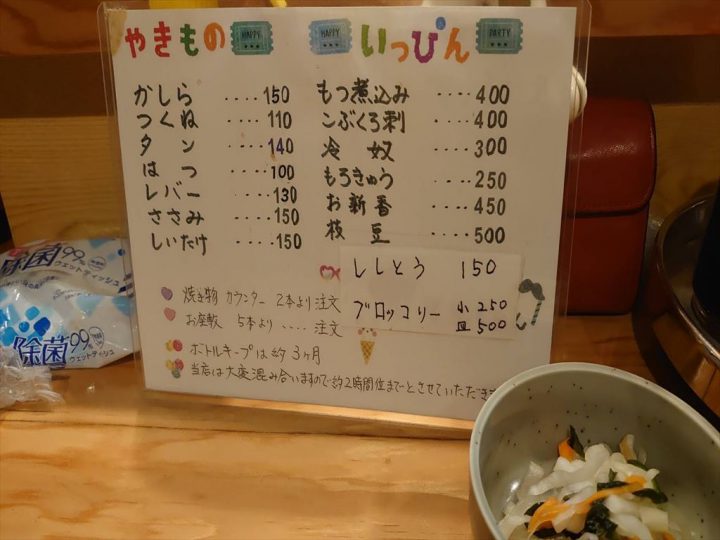 やきもの HAPPY
かしら ‥‥150
つくね ‥‥110
タン ‥‥140
はつ ‥‥100
レバー ‥‥130
ささみ ‥‥150
しいたけ ‥‥150
HAPPY いっぴん PARTY
もつ煮込み ‥‥400
こぶくろ刺 ‥‥400
冷奴 ‥‥300
もろきゅう ‥‥250
お新香 ‥‥450
枝豆 ‥‥500
ししとう 150
ブロッコリー 小250
皿500
焼き物 カウンター 2本より注文
お座敷 5本より‥‥注文
ボトルキープは約3ヶ月
当店は大変混み合いますので約2時間位までとさせていただきま
除菌99%
ウェットティッシュ
除菌99%
ウェットティッシュ